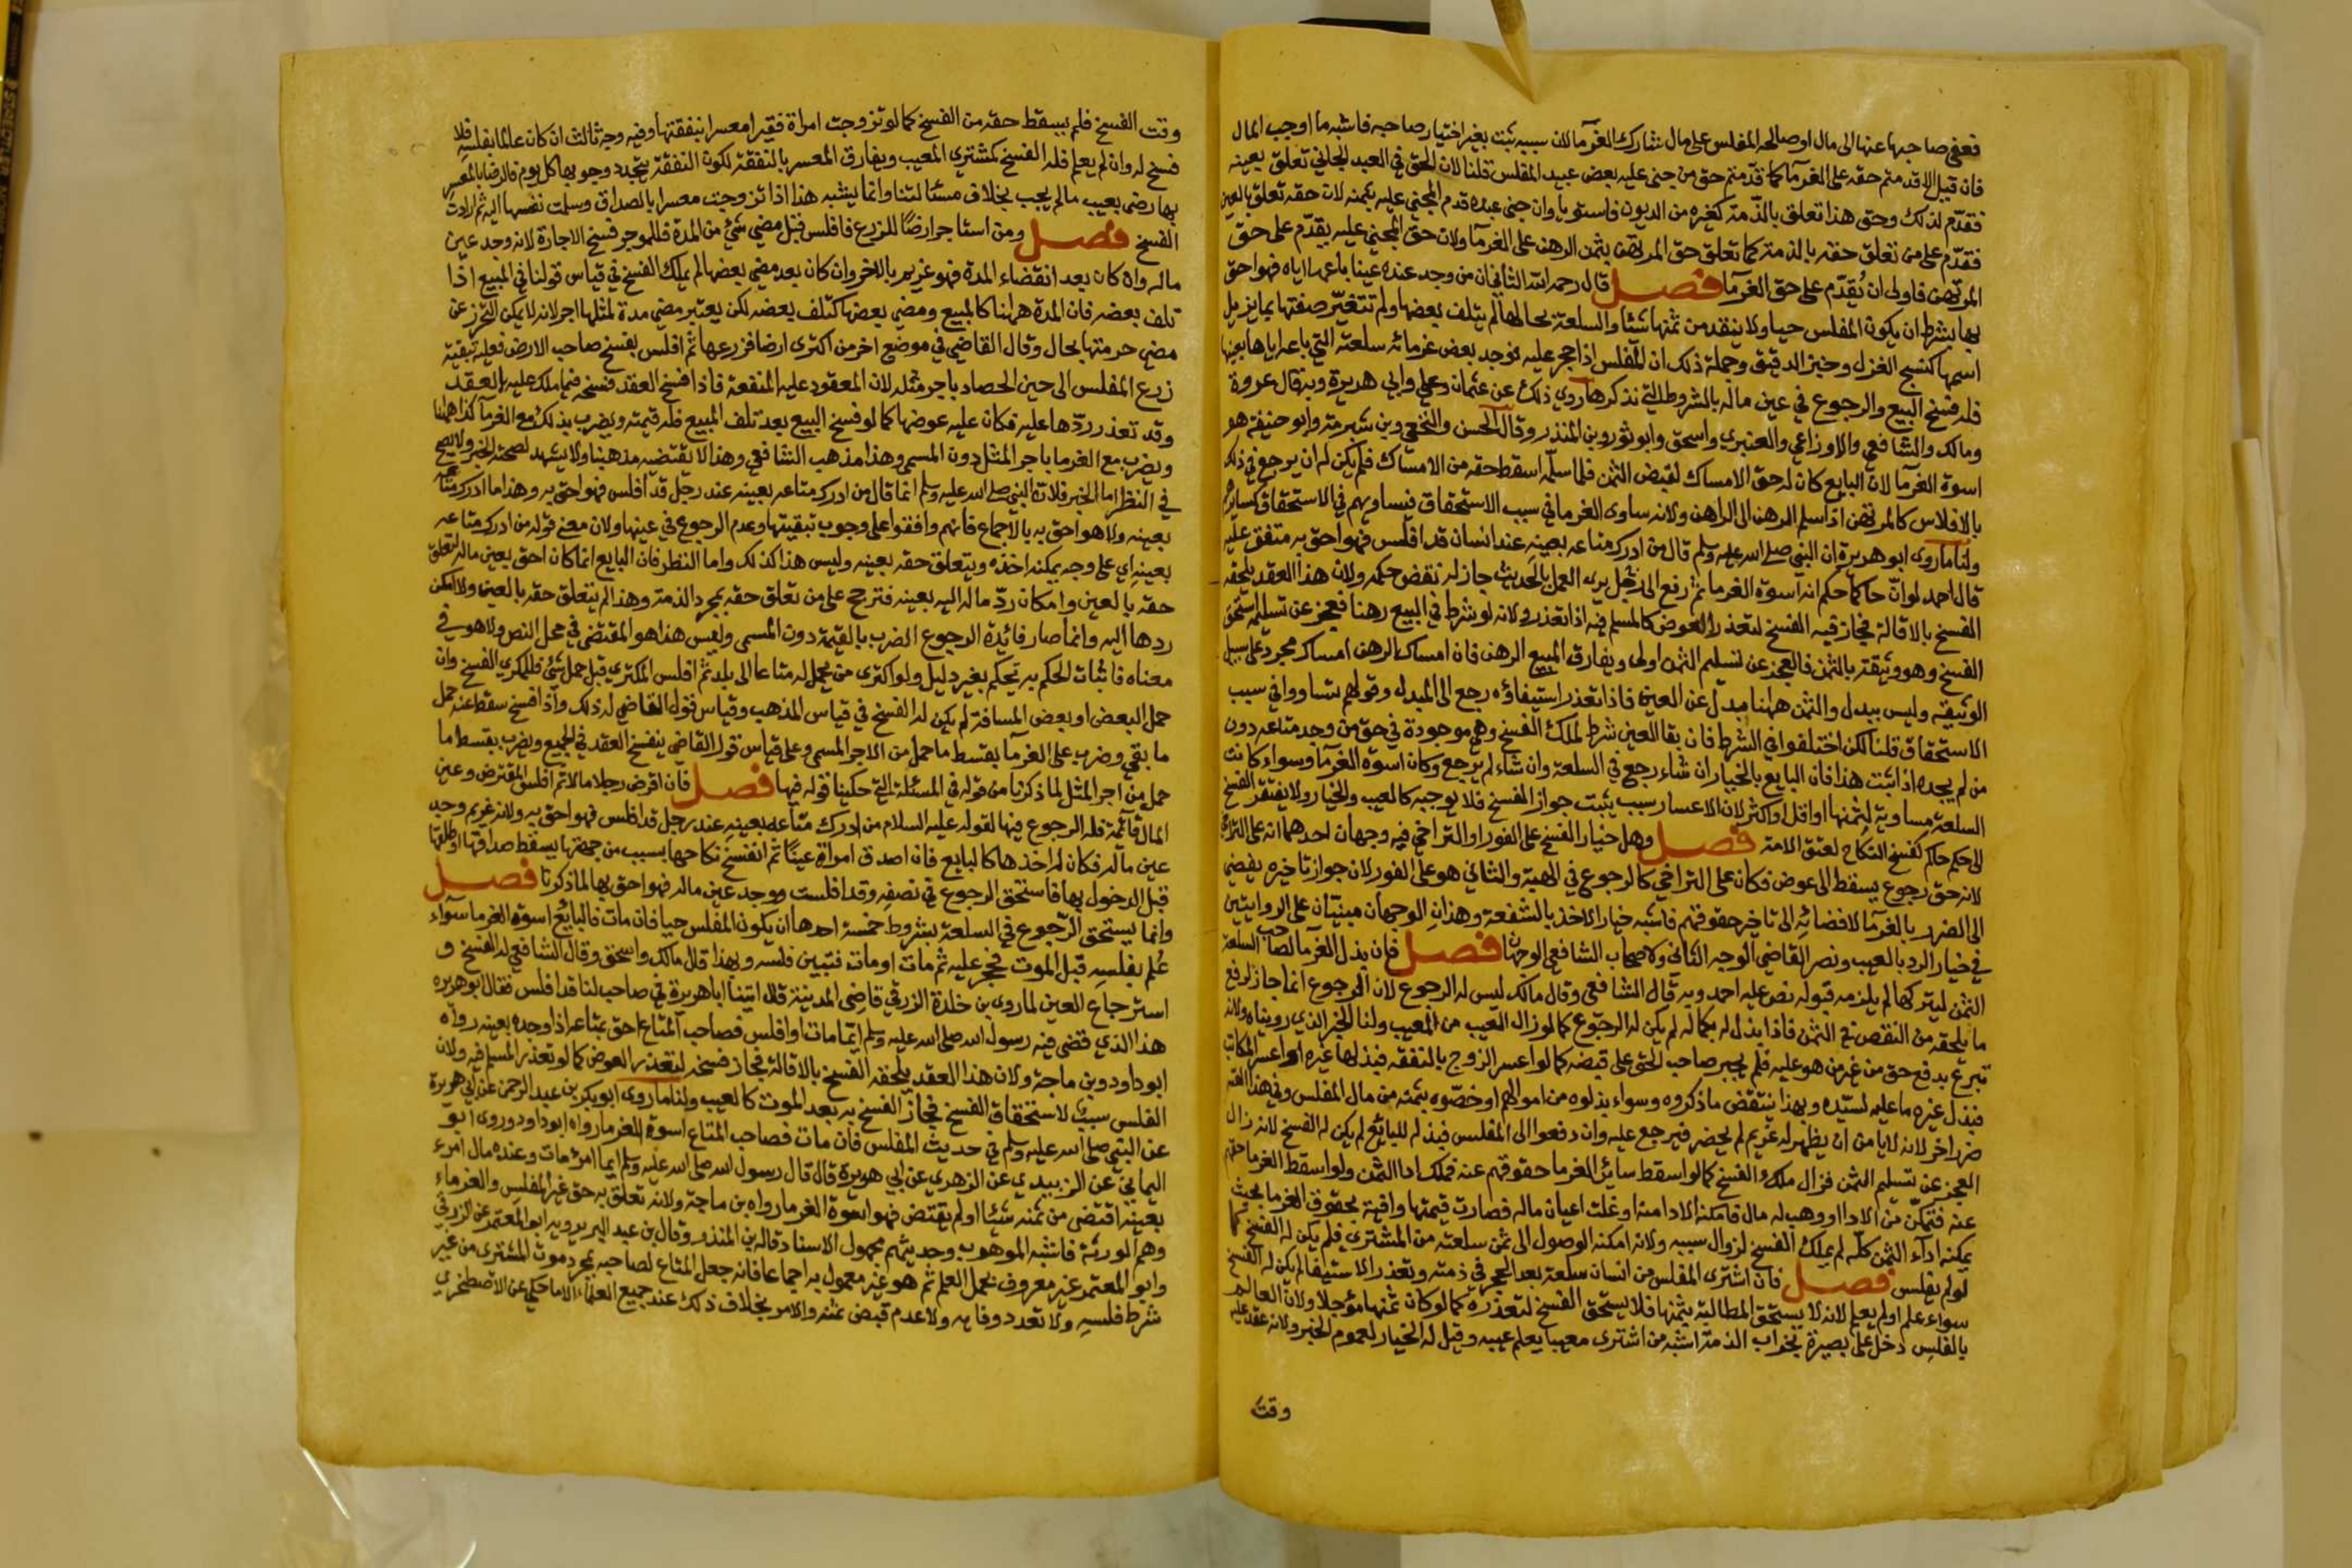 فعفى صاحبها عنها الى مال او صالحه المفلس على مال شارك الغرمآ لان سببه ثبت بغير اختيار صاحبه فاشبه ما اوجب المال
فان قيل الا قدمتم حقه على الغرمآ كما قدمتم حق من جنى عليه بعض عبيد المفلس قلنا لان الحق في العبد الجاني تعلق بعينه
فقدم لذلك وحق هذا تعلق بالذمة كغيره من الديون فاستويا وان جنى عبده قدم المجني عليه بثمنه لان حقه تعلق بالعين
فقدم على من تعلق حقه بالذمة كما تعلق حق المرتهن بثمن الرهن على الغرمآ ولان حق المجني عليه يقدم على حق
المرتهن فاولى ان يُقدّم على حق الغرمآ فصل قال رحمه الله الثاني ان من وجد عنده عينا باعها اياه فهو احق
بها بشرط ان يكون المفلس حيا ولا ينقد من ثمنها شئا والسلعة بحالها لم يتلف بعضها ولم تتغير صفتها بما يزيل
اسمها كنسج الغزل وخبز الدقيق وجملة ذلك ان المفلس اذا حجر عليه فوجد بعض غرمائه سلعته التي باعه اياها بعينها
فله فسخ البيع والرجوع في عين ماله بالشروط التي نذكرها روي ذلك عن عثمان وعلي وابي هريرة وبه قال عروة
ومالك والشافعي والاوزاعي والعنبري واسحق وابو ثور وبن المنذر وقال الحسن والنخعي وبن شبرمة وابو حنيفة هو
اسوة الغرمآ لان البايع كان له حق الامساك لقبض الثمن فلما سلمه اسقط حقه من الامساك فلم يكن له ان يرجع في ذلك
بالافلاس كالمرتهن اذا سلم الرهن الى الراهن ولانه ساوى الغرما في سبب الاستحقاق فيساويهم في الاستحقاق كسائرهم
ولنا ما روى ابو هريرة ان النبي صلى الله عليه وسلم قال من ادرك متاعه بعينه عند انسان قد افلس فهو احق به متفق عليه
قال احمد لو انّ حاكما حكم انه اسوة الغرما ثم رفع الى رجل يرى العمل بالحديث جاز له نقض حكمه ولان هذا العقد يلحقه
الفسخ بالاقالة فجاز فيه الفسخ لتعذر العوض كالمسلم فيه اذا تعذر ولانه لو شرط في المبيع رهنا فعجز عن تسليمه استحق
الفسخ وهو وثيقة بالثمن فالعجز عن تسليم الثمن اولى ويفارق المبيع الرهن فان امساك الرهن امساك مجرد على سبيل
الوثيقه وليس ببدل والثمن ههنا بدل عن العين فاذا تعذر استيفاؤه رجع الى المبدل وقولهم تساووا في سبب
الاستحقاق قلنا لكن اختلفوا في الشرط فان بقا العين شرط لملك الفسخ وهي موجودة في حق من وجد متاعه دون
من لم يجده اذا ثبت هذا فان البايع بالخيار ان شاء رجع في السلعة وان شاء لم يرجع وكان اسوة الغرمآ وسواء كانت
السلعة مساوية لثمنها او اقل او اكثر لان الاعسار سبب يثبت جواز الفسخ فلا يوجبه كالعيب والخيار ولا يفتقر الفسخ
الى حكم حاكم كفسخ النكاح لعتق الامة فصل وهل خيار الفسخ على الفور او التراخي فيه وجهان احدهما انه على التراخي
لانه حق رجوع يسقط الى عوض فكان على التراخي كالرجوع في الهبة والثاني هو على الفور لان جواز تاخيره يفضي
الى الضرر بالغرمآ لافضائه الى تاخير حقوقهم فاشبه خيار الاخذ بالشفعة وهذان الوجهان مبنيان على الروايتين
في خيار الرد بالعيب ونصر القاضي الوجه الثاني ولاصحاب الشافعي الوجهان فصل فان بذل الغرمآ لصاحب السلعة
الثمن ليتركها لم يلزمه قبوله نص عليه احمد وبه قال الشافعي وقال مالك ليس له الرجوع لان الرجوع انما جاز لدفع
ما يلحقه من النقص في الثمن فاذا بذل له بكماله لم يكن له الرجوع كما لو زال العيب من المعيب ولنا الخبر الذي رويناه ولانه
تبرع بدفع حق من غير من هو عليه فلم يجبر صاحب الحق على قبضه كما لو اعسر الزوج بالنفقه فبذلها غيره او اعسر المكاتب
فبذل غيره ما عليه لسيده وبهذا ينتقض ما ذكروه وسواء بذلوه من اموالهم او خصّوه بثمنه من مال المفلس وفي هذا القسم
ضرر اخر لانه لا يامن ان يظهر له غريم لم يحضر فيرجع عليه وان دفعوا الى المفلس فبذله للبائع لم يكن له الفسخ لانه زال
العجز عن تسليم الثمن فزال ملك الفسخ كما لو اسقط سائر الغرما حقوقهم عنه فملك ادا الثمن ولو اسقط الغرما حقهم
عنه فتمكّن من الادا او وهب له مال فامكنه الادا منه او غلت اعيان ماله فصارت قيمتها وافية بحقوق الغرما بحيث
يمكنه ادآء الثمن كلّه لم يملك الفسخ لزوال سببه ولانه امكنه الوصول الى ثمن سلعته من المشتري فلم يكن له الفسخ كما
لو لم يفلس فصل فان اشترى المفلس من انسان سلعة بعد الحجر في ذمته وتعذر الاستيفا لم يكن له الفسخ
سواء علم او لم يعلم لانه لا يستحق المطالبة بثمنها فلا يستحق الفسخ لتعذره كما لو كان ثمنها مؤجلا ولان العالم
بالفلس دخل على بصيرة بخراب الذمة اشبه من اشترى معيبا يعلم عيبه وقيل له الخيار لعموم الخبر ولانه عقد عليه
وقت
وقت الفسخ فلم يسقط حقه من الفسخ كما لو تزوجت امراة فقيرا معسرا بنفقتها وفيه وجه ثالث ان كان عالما بفلسه فلا
فسخ له وان لم يعلم فله الفسخ كمشتري المعيب ويفارق المعسر بالنفقة لكون النفقة يتجدد وجوبها كل يوم فالرضا بالمعسر
بها رضى بعيب ما لم يجب بخلاف مسئالتنا وانما يشبه هذا اذا تزوجت معسرا بالصداق وسلمت نفسها اليه ثم ارادت
الفسخ فصل ومن استاجر ارضًا للزرع فافلس قبل مضي شئ من المدة فللموجر فسخ الاجارة لانه وجد عين
ماله وان كان بعد انقضاء المدة فهو غريم بالاجر وان كان بعد مضي بعضها لم يملك الفسخ في قياس قولنا في المبيع اذا
تلف بعضه فان المدة ههنا كالمبيع ومضي بعضها كتلف بعضه لكن يعتبر مضي مدة لمثلها اجر لانه لا يمكن التحرز عن
مضي جزء منها بحال وقال القاضي في موضع اخر من اكترى ارضا فزرعها ثم افلس بفسخ صاحب الارض فعليه تبقية
زرع المفلس الى حين الحصاد باجر مثله لان المعقود عليه المنفعة فاذا فسخ العقد فسخه فيما ملك عليه بالعقد
وقد تعذر ردّها عليه فكان عليه عوضها كما لو فسخ البيع بعد تلف المبيع فله قيمته ويضرب بذلك مع الغرمآ كذا ههنا
ويضرب مع الغرما باجر المثل دون المسمى وهذا مذهب الشافعي وهذا لا يقتضيه مذهبنا ولا يشهد لصحته الخبر ولا يصح
في النظر اما الخبر فلان النبي صلى الله عليه وسلم انما قال من ادرك متاعه بعينه عند رجل قد افلس فهو احق به وهذا ما ادرك متاعه
بعينه ولا هو احق به بالاجماع فانهم وافقوا على وجوب تبقيتها وعدم الرجوع في عينها ولان معنى قوله من ادرك متاعه
بعينه اي على وجه يمكنه اخذه ويتعلق حقه بعينه وليس هذا كذلك واما النظر فان البايع انما كان احق بعين ماله لتعلق
حقه بالعين وامكان ردّ ماله اليه بعينه فترجح على من تعلق حقه بمجرد الذمة وهذا لم يتعلق حقه بالعين ولا امكن
ردها اليه وانما صار فائدة الرجوع الضرب بالقيمة دون المسمى وليس هذا هو المقتضي في محل النص ولا هو في
معناه فاثبات الحكم به تحكم بغير دليل ولو اكترى من يحمل له متاعا الى بلد ثم افلس المكتري قبل حمل شئ فللمكري الفسخ وان
حمل البعض او بعض المسافة لم يكن له الفسخ في قياس المذهب وقياس قول القاضي له ذلك واذا فسخ سقط عنه حمل
ما بقي وضرب على الغرمآ بقسط ما حمل من الاجر المسمى وعلى قياس قول القاضي ينفسخ العقد في الجميع ويضرب بقسط ما
حمل من اجر المثل لما ذكرنا من قوله في المسئلة التي حكينا قوله فيها فصل فان اقرض رجلا مالا ثم افلس المقترض وعين
المال قآئمة فله الرجوع فيها لقوله عليه السلام من ادرك متاعه بعينه عند رجل قد افلس فهو احق به ولانه غريم وجد
عين ماله فكان له اخذها كالبايع فان اصدق امراة عينًا ثم انفسخ نكاحها بسبب من جهتها يسقط صداقها او طلقها
قبل الدخول بها فاستحق الرجوع في نصفه وقد افلست ووجد عين ماله فهو احق بها لما ذكرنا فصل
وانما يستحق الرجوع في السلعة بشروط خمسة احدها ان يكون المفلس حيا فان مات فالبائع اسوة الغرما سوآء
عُلم بفلسه قبل الموت فحجر عليه ثم مات او مات فتبين فلسه وبهذا قال مالك واسحق وقال الشافعي له الفسخ و
استرجاع العين لما روى بن خلدة الزرقي قاضي المدينة قال اتينا ابا هريرة في صاحب لنا قد افلس فقال ابو هريره
هذا الذي قضى فيه رسول الله صلى الله عليه وسلم ايما مات او افلس فصاحب المتاع احق بمتاعه اذا وجده بعينه رواه
ابو داود وبن ماجة ولان هذا العقد يلحقه الفسخ بالاقالة فجاز فسخه لتعذر العوض كما لو تعذر المسلم فيه ولان
الفلس سبب لاستحقاق الفسخ فجاز الفسخ به بعد الموت كالعيب ولنا ما روى ابو بكر بن عبد الرحمن عن ابي هريرة
عن النبي صلى الله عليه وسلم في حديث المفلس فان مات فصاحب المتاع اسوة الغرما رواه ابو داود وروى ابو
اليماني عن الزبيدي عن الزهري عن ابي هريرة قال قال رسول الله صلى الله عليه وسلم ايما امرئ مات وعنده مال امرء
بعينه اقتضى من ثمنه شئا او لم يقتض فهو اسوة الغرما رواه بن ماجة ولانه تعلق به حق غير المفلس والغرماء
وهم الورثة فاشبه الموهوب وحديثهم مجهول الاسناد قاله بن المنذر وقال بن عبد البر يرويه ابو المعتمر عن الزرقي
وابو المعتمر غير معروف بحمل العلم ثم هو غير معمول به اجماعا فانه جعل المتاع لصاحبه بمجرد موت المشتري من غير
شرط فلسه ولا تعذر وفايه ولا عدم قبض ثمنه والامر بخلاف ذلك عند جميع العلماء الا ما حكي عن الاصطخري